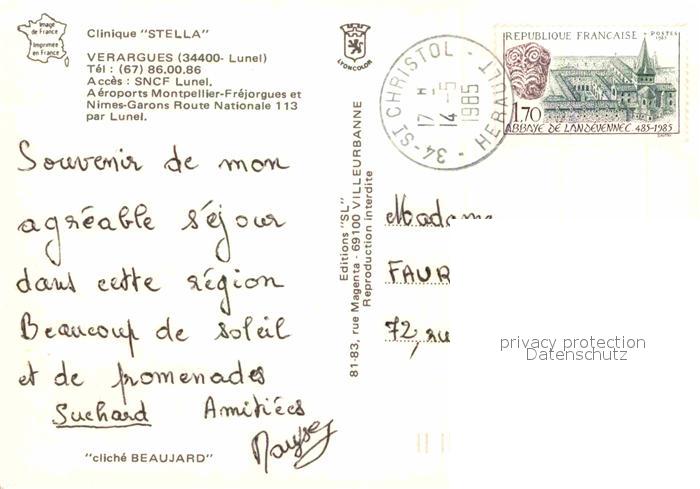 Image
de France
Imprimée
en France
Clinique "STELLA"
VERARGUES (34400- Lunel)
Tél : (67) 86.00.86
Accès : SNCF Lunel.
Aéroports Montpellier-Fréjorgues et
Nimes-Garons Route Nationale 113
par Lunel.
LYONCOLOR
34-ST CHRISTOL - HERAULT
17 H
14-5
1985
REPUBLIQUE FRANÇAISE
POSTES
1,70
ABBAYE DE LANDEVENNEC 485-1985
Souvenir de mon
agréable séjour
dans cette région
Beaucoup de soleil
et de promenades
Suchard Amitiées
Maryse
"cliché BEAUJARD"
Editions "SL"
81-83, rue Magenta - 69100 VILLEURBANNE
Reproduction interdite
Madame
FAUR
72, ru
privacy protection
Datenschutz